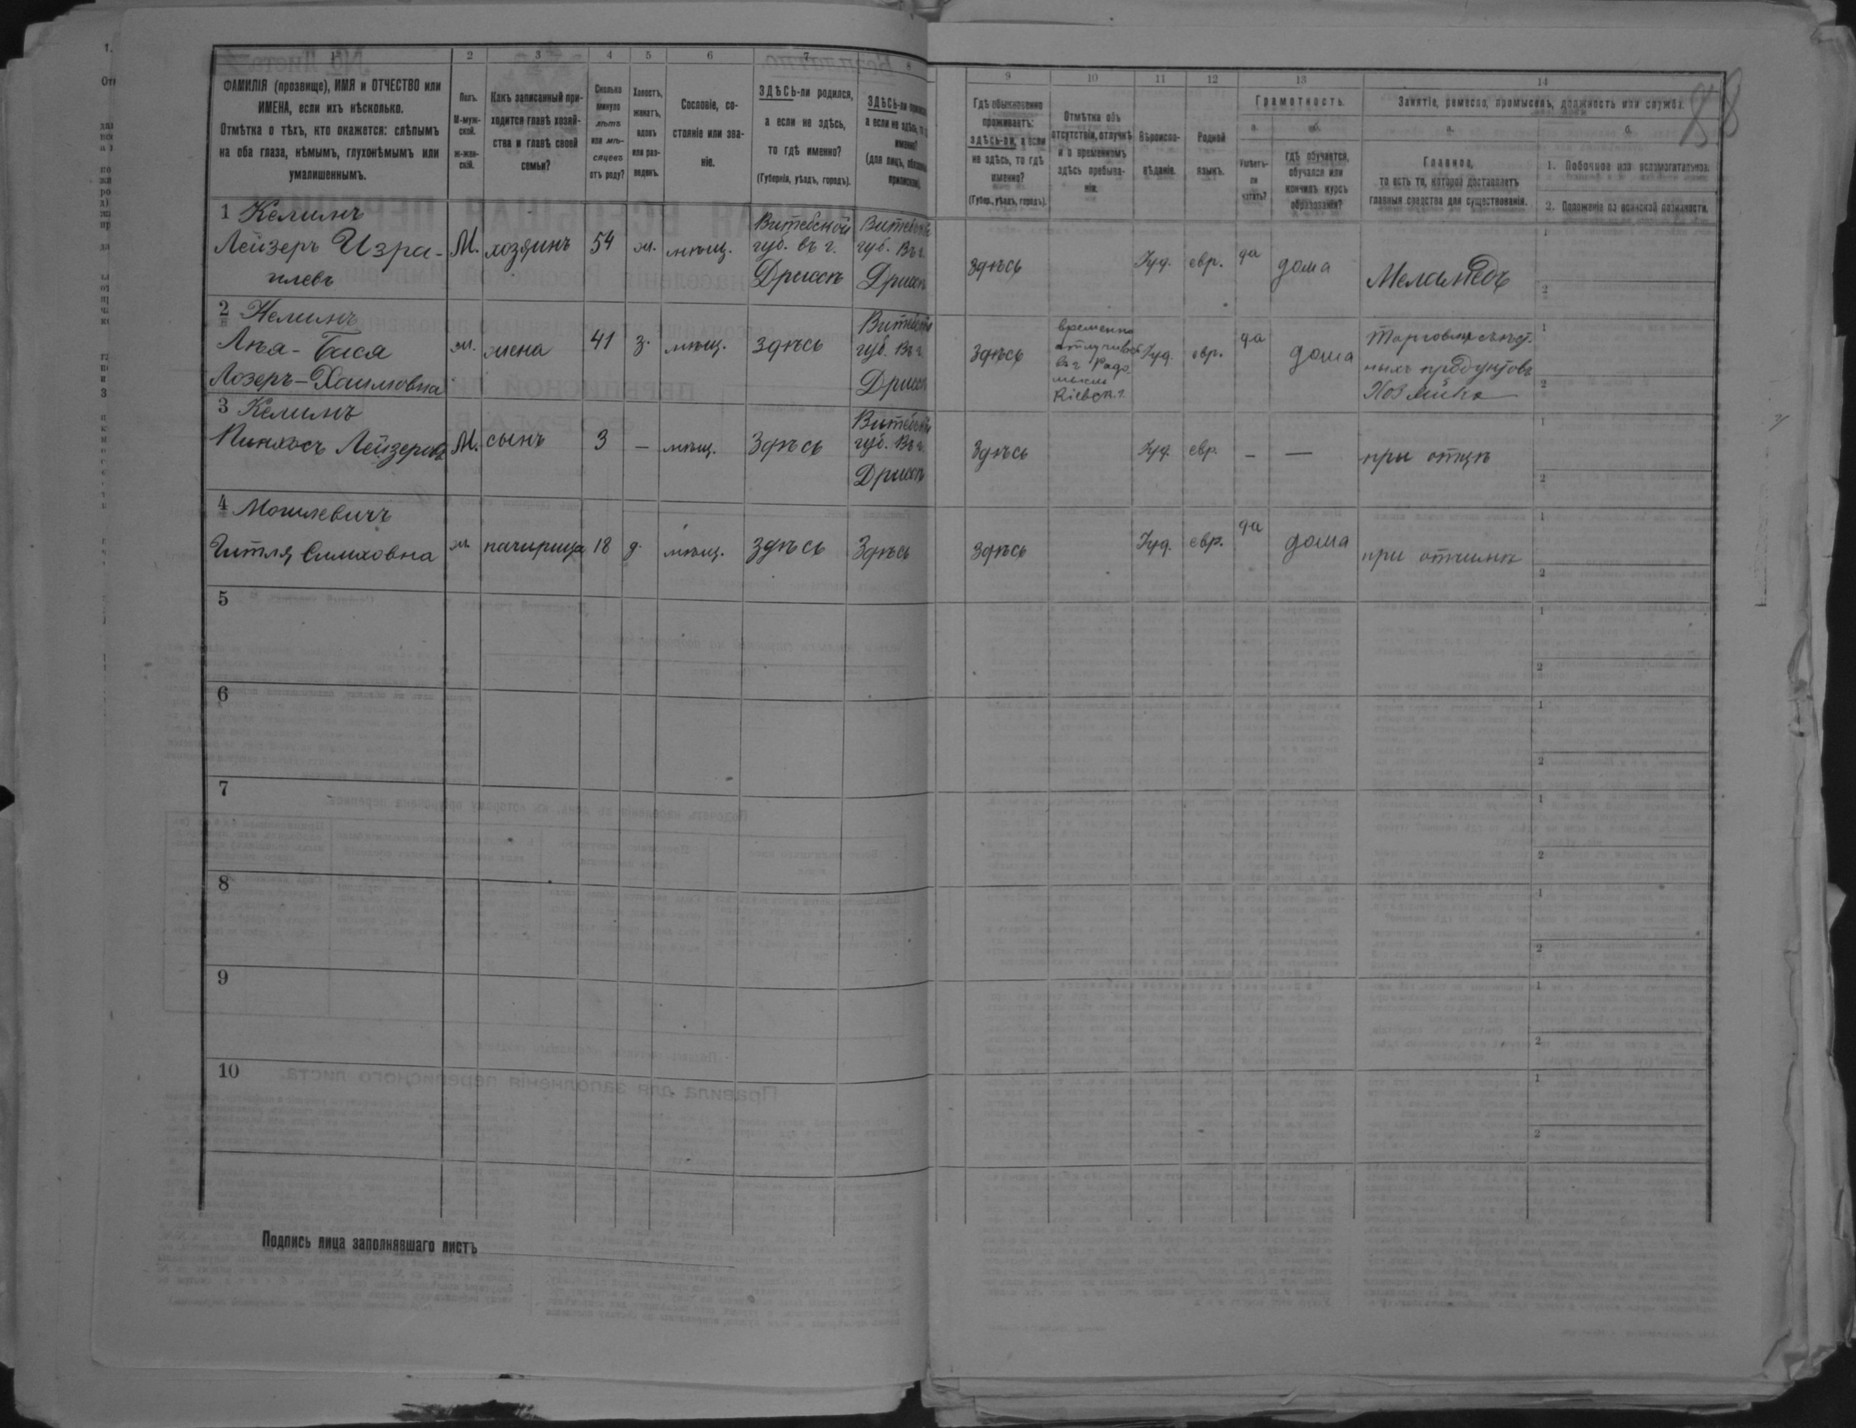 1 2 3 4 5 6 7 8 9 10 11 12 13 14
ФАМИЛІЯ (прозвище), ИМЯ и ОТЧЕСТВО или
ИМЕНА, если ихъ нѣсколько.
Отмѣтка о тѣхъ, кто окажется: слѣпымъ
на оба глаза, нѣмымъ, глухонѣмымъ или
умалишеннымъ.
Полъ.
М-муж-
ской.
ж-жен-
скій.
Какъ записанный при-
ходится главѣ хозяй-
ства и главѣ своей
семьи?
Сколько
минуло
лѣтъ
или мѣ-
сяцевъ
отъ роду?
Холостъ,
женатъ,
вдовъ
или раз-
веденъ.
Сословіе, со-
стояніе или зва-
ніе.
ЗДѢСЬ-ли родился,
а если не здѣсь,
то гдѣ именно?
(Губернія, уѣздъ, городъ).
ЗДѢСЬ-ли
а если не здѣсь, то
именно?
(для лицъ,
Гдѣ обыкновенно
проживаетъ:
здѣсь-ли, а если
не здѣсь, то гдѣ
именно?
(Губер., уѣздъ, городъ).
Отмѣтка объ
отсутствіи, отлучкѣ
и о временномъ
здѣсь пребыва-
ніи.
Вѣроиспо-
вѣданіе.
Родной
языкъ.
Грамотность.
а.
б.
Умѣетъ-
ли
читать?
гдѣ обучается,
обучался или
кончилъ курсъ
образованія?
Занятіе, ремесло, промыселъ, должность или служба.
88
а.
Главное,
то есть то, которое доставляетъ
главныя средства для существованія.
б.
1. Побочное или вспомогательное.
2. Положеніе по воинской повинности.
1 Келинъ
Лейзеръ Изра-
илевъ
М. хозяинъ 54 ж. мѣщ.
Витебской
губ. въ г.
Дриссѣ
Витебской
губ. Въ г.
Дриссѣ
здѣсь
Іуд. евр. да дома
Меламедъ
2 Келинъ
Хая-Бася
Лозеръ-Хаимовна
ж. жена 41 з. мѣщ. здѣсь
Витебской
губ. Въ г.
Дриссѣ
здѣсь
временно
Кіевск. г.
Іуд. евр. да дома
ныхъ продуктовъ
Хозяйка
3 Келинъ
Пинхосъ Лейзеровъ
М. сынъ 3 — мѣщ. здѣсь
Витебской
губ. Въ г.
Дриссѣ
здѣсь
Іуд. евр. — —
при отцѣ
4 Могилевичъ
Гитля Симховна
ж. пачирица 18 д. мѣщ. здѣсь здѣсь
здѣсь
Іуд. евр. да дома
при отчимѣ
5
6
7
8
9
10
Подпись лица заполнявшаго листъ